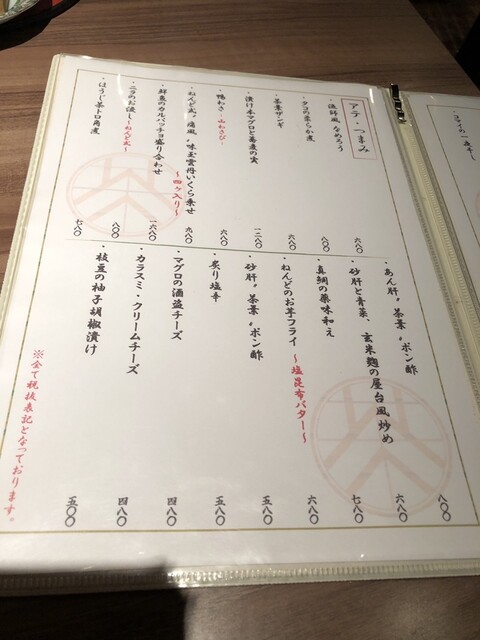 アテ・つまみ
・漁師風 なめろう 六八〇
・タコの柔らか煮 八〇〇
・茶葉ザンギ 六八〇
・漬け本マグロと蕎麦の実 一二八〇
・鴨わさ〜山わさび〜 六八〇
・ねんど式〝痛風〟味玉雲丹いくら乗せ 〜四ヶ入り〜 九八〇
・鮮魚のカルパッチョ盛り合わせ 一六八〇
・ニラのお浸し〜ねんど式〜 八〇〇
・ほうじ茶トロ角煮 七八〇
・あん肝〝茶葉〟ポン酢 八〇〇
・砂肝と青菜、玄米麹の屋台風炒め 六八〇
・真鯛の薬味和え 七八〇
・ねんどのお芋フライ 〜塩昆布バター〜 六八〇
・砂肝〝茶葉〟ポン酢 五八〇
・炙り塩辛 五八〇
・マグロの酒盗チーズ 四八〇
・カラスミ・クリームチーズ 四八〇
・枝豆の柚子胡椒漬け 五〇〇
※全て税抜表記となっております。